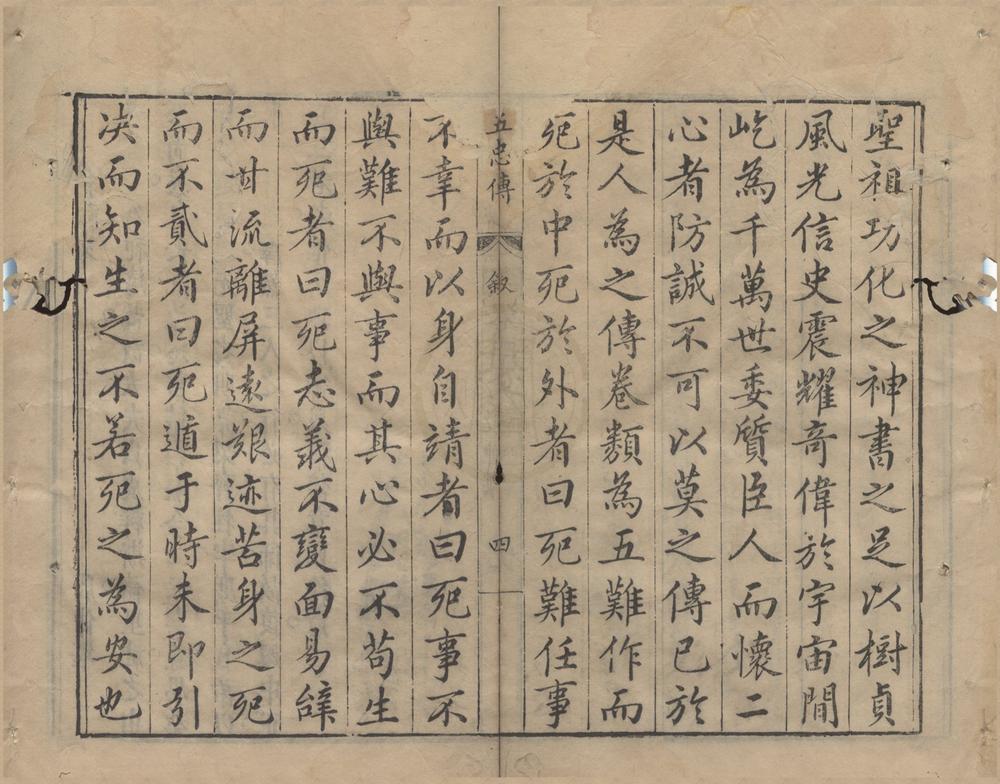 聖祖功化之神書之足以樹貞
風光信史震耀奇偉於宇宙間
屹為千萬世委質臣人而懷二
心者防誠不可以莫之傳已於
是人為之傳卷類為五難作而
死於中死於外者曰死難任事
五忠傳 敘 四
不幸而以身自靖者曰死事不
與難不與事而其心必不苟生
而死者曰死志義不變面易辭
而甘流離屏遠艱迹苦身之死
而不貳者曰死遁于時未即引
决而知生之不若死之為安也